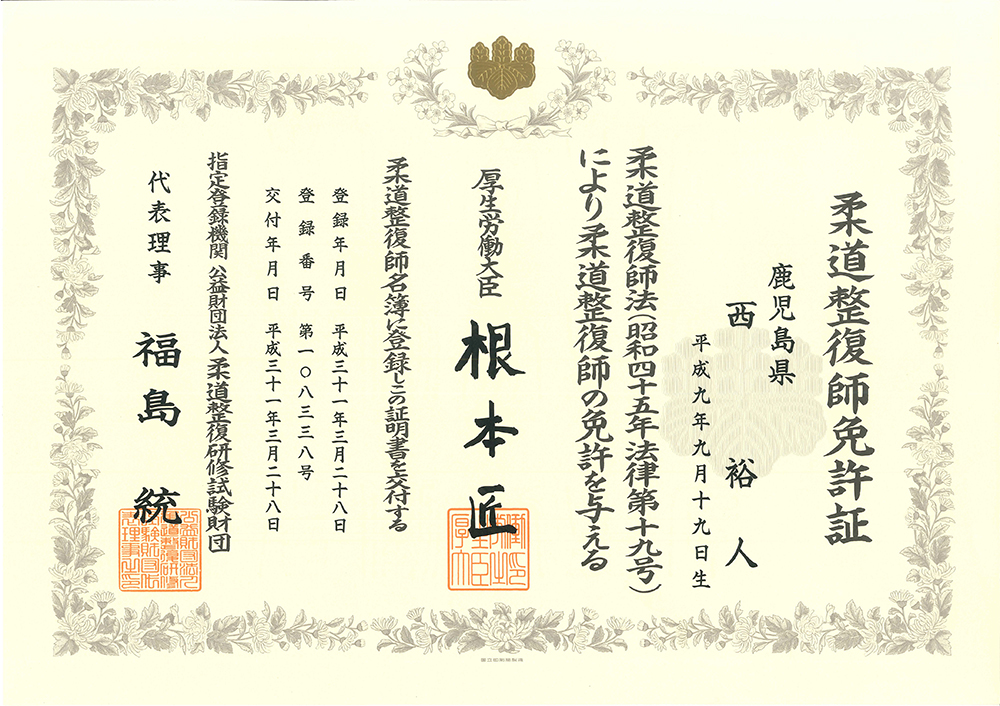 柔道整復師免許証
鹿児島県
西裕人
平成九年九月十九日生
柔道整復師法(昭和四十五年法律第十九号)
により柔道整復師の免許を与える
厚生労働大臣 根本匠
柔道整復師名簿に登録しこの証明書を交付する
登録年月日 平成三十一年三月二十八日
登録番号 第一〇八三三八号
交付年月日 平成三十一年三月二十八日
指定登録機関 公益財団法人 柔道整復研修試験財団
代表理事 福島統